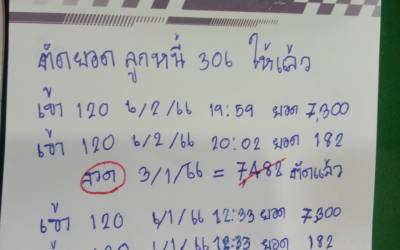 ตัดยอด ลูกหนี้ 306 ให้แล้ว
เข้า 120 6/2/66 19:59 ยอด 7,300
เข้า 120 6/2/66 20:02 ยอด 182
งวด 3/1/66 = 7482 ตัดแล้ว
เข้า 120 6/1/66 12:33 ยอด 7,300
120 6/1/66 12:33 ยอด 182